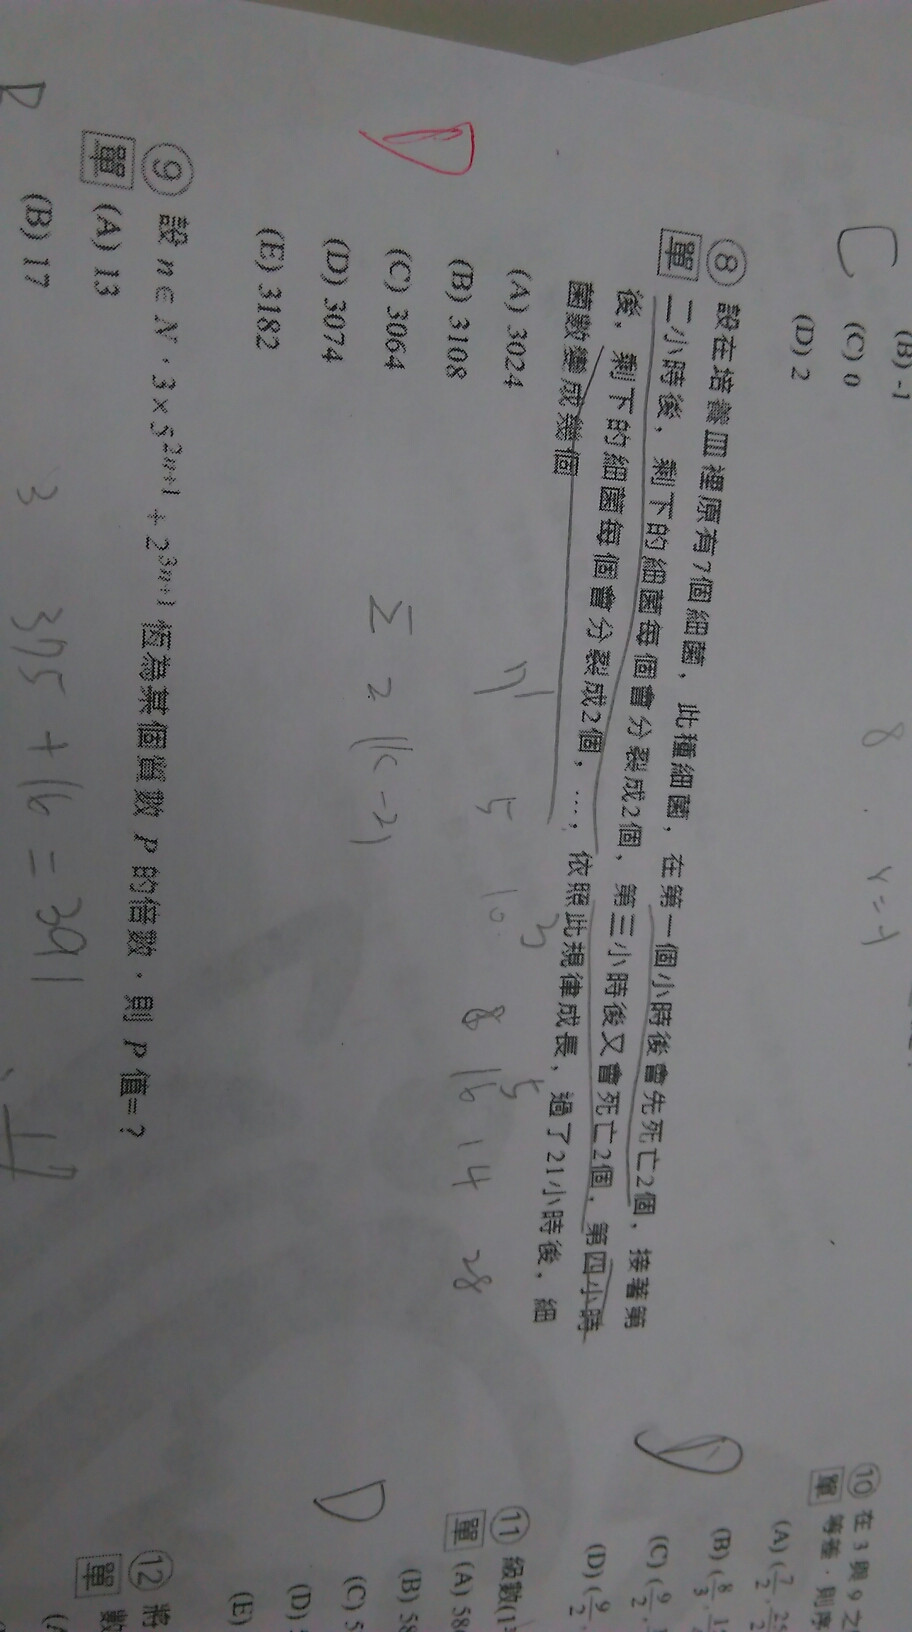 (B) -1
(C) 0
(D) 2
C
8
r = -1
⑧ 設在培養皿裡原有7個細菌，此種細菌，在第一個小時後會先死亡2個，接著第
單 二小時後，剩下的細菌每個會分裂成2個，第三小時後又會死亡2個，第四小時
後，剩下的細菌每個會分裂成2個，…，依照此規律成長，過了21小時後，細
菌數變成幾個
(A) 3024
(B) 3108
(C) 3064
(D) 3074
(E) 3182
D
5 10 8 16 14 28
3 5
Σ 2 (k-2)
⑨ 設 n ∈ N，3 × 5²ⁿ⁺¹ + 2³ⁿ⁺¹ 恆為某個質數 P 的倍數，則 P 值=?
單 (A) 13
(B) 17
B
3 375 + 16 = 391
17
⑩ 在 3 與 9 之
單 等差，則序
(A) (7/2,
(B) (8/3,
(C) (9/2,
(D) (9/2
D
⑪ 級數(1
單 (A) 58
(B) 58
(C) 5
(D)
(E)
D
⑫ 將
單 數